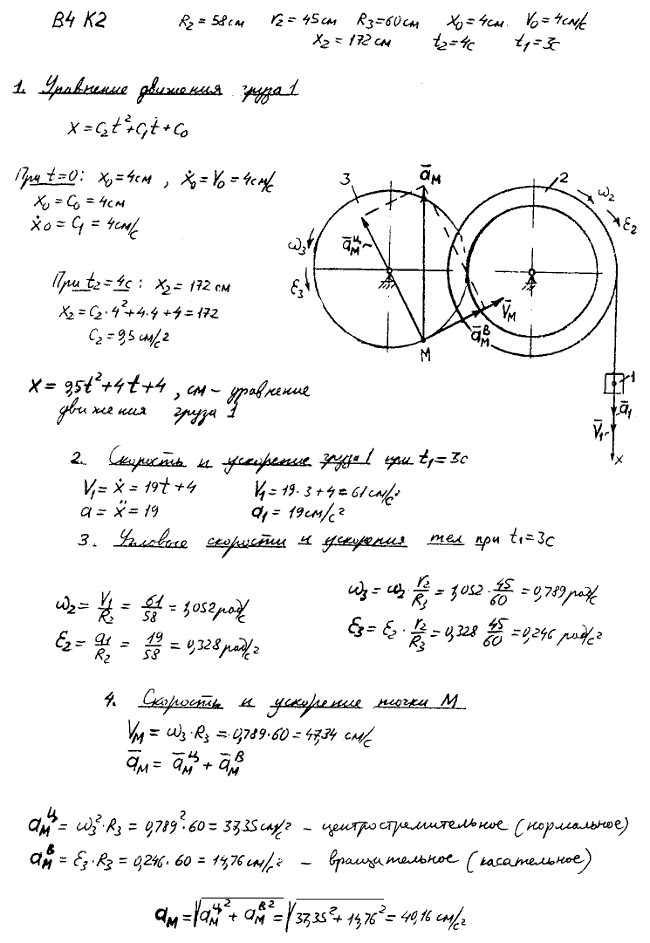 В4 К2 R₂ = 58см r₂ = 45см R₃ = 60см X₀ = 4см. V₀ = 4см/с
X₂ = 172см t₂ = 4с t₁ = 3с
1. Уравнение движения груза 1
X = C₂t² + C₁t + C₀
При t=0: X₀ = 4см , ẋ₀ = V₀ = 4см/с
X₀ = C₀ = 4см
ẋ₀ = C₁ = 4см/с
При t₂ = 4с : X₂ = 172 см
X₂ = C₂·4² + 4·4 + 4 = 172
C₂ = 9,5 см/с²
X = 9,5t² + 4t + 4 , см – уравнение
движения груза 1
3
ā_M
2
ω₂
ε₂
ω₃
ε₃
ā_M^ц
V̄_M
ā_M^в
M
1
ā₁
V̄₁
x
2. Скорость и ускорение груза 1 при t₁ = 3с
V₁ = ẋ = 19t + 4 V₁ = 19·3 + 4 = 61 см/с²
a = ẍ = 19 a₁ = 19 см/с²
3. Угловые скорости и ускорения тел при t₁ = 3с
ω₂ = V₁/R₂ = 61/58 = 1,052 рад/с
ε₂ = a₁/R₂ = 19/58 = 0,328 рад/с²
ω₃ = ω₂ · r₂/R₃ = 1,052 · 45/60 = 0,789 рад/с
ε₃ = ε₂ · r₂/R₃ = 0,328 45/60 = 0,246 рад/с²
4. Скорость и ускорение точки М
V_M = ω₃·R₃ = 0,789·60 = 47,34 см/с
ā_M = ā_M^ц + ā_M^в
a_M^ц = ω₃²·R₃ = 0,789²·60 = 37,35 см/с² – центростремительное (нормальное)
a_M^в = ε₃·R₃ = 0,246·60 = 14,76 см/с² – вращательное (касательное)
a_M = √(a_M^ц² + a_M^в²) = √(37,35² + 14,76²) = 40,16 см/с²